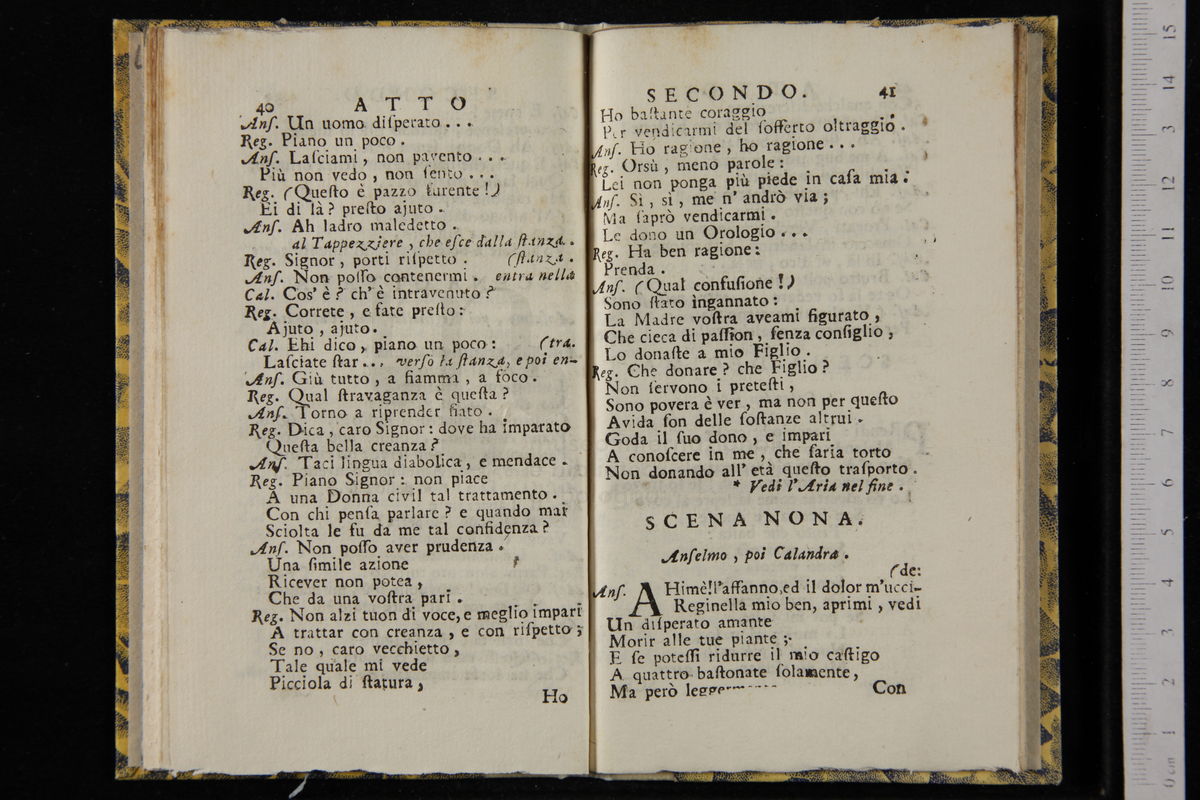 40 ATTO
Anſ. Un uomo diſperato . . .
Reg. Piano un poco .
Anſ. Laſciami , non pavento . . .
Più non vedo , non ſento . . .
Reg. (Queſto è pazzo furente !)
Ei di là ? preſto ajuto .
Anſ. Ah ladro maledetto .
al Tappezziere , che eſce dalla ſtanza .
Reg. Signor , porti riſpetto . (ſtanza .
Anſ. Non poſſo contenermi . entra nella
Cal. Cos' è ? ch' è intravenuto ?
Reg. Correte , e fate preſto :
Ajuto , ajuto .
Cal. Ehi dico , piano un poco : (tra.
Laſciate ſtar . . . verſo la ſtanza , e poi en-
Anſ. Giù tutto , a fiamma , a foco .
Reg. Qual ſtravaganza è queſta ?
Anſ. Torno a riprender fiato .
Reg. Dica , caro Signor : dove ha imparato
Queſta bella creanza ?
Anſ. Taci lingua diabolica , e mendace .
Reg. Piano Signor : non piace
A una Donna civil tal trattamento .
Con chi penſa parlare ? e quando mai
Sciolta le fu da me tal confidenza ?
Anſ. Non poſſo aver prudenza .
Una ſimile azione
Ricever non potea ,
Che da una voſtra pari .
Reg. Non alzi tuon di voce, e meglio impari
A trattar con creanza , e con riſpetto ;
Se no , caro vecchietto ,
Tale quale mi vede
Picciola di ſtatura ,
Ho
SECONDO. 41
Ho baſtante coraggio
Per vendicarmi del ſofferto oltraggio .
Anſ. Ho ragione , ho ragione . . .
Reg. Orsù , meno parole :
Lei non ponga più piede in caſa mia .
Anſ. Sì , sì , me n' andrò via ;
Ma ſaprò vendicarmi .
Le dono un Orologio . . .
Reg. Ha ben ragione :
Prenda .
Anſ. (Qual confuſione !)
Sono ſtato ingannato :
La Madre voſtra aveami figurato ,
Che cieca di paſſion , ſenza conſiglio ,
Lo donaſte a mio Figlio .
Reg. Che donare ? che Figlio ?
Non ſervono i preteſti ,
Sono povera è ver , ma non per queſto
Avida ſon delle ſoſtanze altrui .
Goda il ſuo dono , e impari
A conoſcere in me , che ſaria torto
Non donando all' età queſto traſporto .
* Vedi l'Aria nel fine .
SCENA NONA.
Anſelmo , poi Calandra .
(de:
Anſ. AHimè! l'affanno, ed il dolor m'ucci-
Reginella mio ben, aprimi , vedi
Un diſperato amante
Morir alle tue piante ;
E ſe poteſſi ridurre il mio caſtigo
A quattro baſtonate ſolamente ,
Ma però
Con